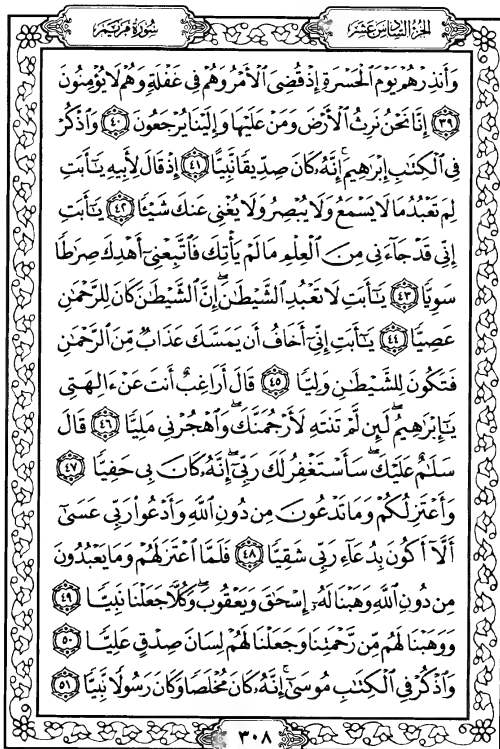 سُورَةُ مَرْيَم
الجُزْءُ السَّادِسُ عَشَر
وَأَنذِرْهُمْ يَوْمَ ٱلْحَسْرَةِ إِذْ قُضِىَ ٱلْأَمْرُ وَهُمْ فِى غَفْلَةٍ وَهُمْ لَا يُؤْمِنُونَ
٣٩ إِنَّا نَحْنُ نَرِثُ ٱلْأَرْضَ وَمَنْ عَلَيْهَا وَإِلَيْنَا يُرْجَعُونَ ٤٠ وَٱذْكُرْ
فِى ٱلْكِتَٰبِ إِبْرَٰهِيمَ ۚ إِنَّهُۥ كَانَ صِدِّيقًا نَّبِيًّا ٤١ إِذْ قَالَ لِأَبِيهِ يَٰٓأَبَتِ
لِمَ تَعْبُدُ مَا لَا يَسْمَعُ وَلَا يُبْصِرُ وَلَا يُغْنِى عَنكَ شَيْـًٔا ٤٢ يَٰٓأَبَتِ
إِنِّى قَدْ جَآءَنِى مِنَ ٱلْعِلْمِ مَا لَمْ يَأْتِكَ فَٱتَّبِعْنِىٓ أَهْدِكَ صِرَٰطًا
سَوِيًّا ٤٣ يَٰٓأَبَتِ لَا تَعْبُدِ ٱلشَّيْطَٰنَ ۖ إِنَّ ٱلشَّيْطَٰنَ كَانَ لِلرَّحْمَٰنِ
عَصِيًّا ٤٤ يَٰٓأَبَتِ إِنِّىٓ أَخَافُ أَن يَمَسَّكَ عَذَابٌ مِّنَ ٱلرَّحْمَٰنِ
فَتَكُونَ لِلشَّيْطَٰنِ وَلِيًّا ٤٥ قَالَ أَرَاغِبٌ أَنتَ عَنْ ءَالِهَتِى
يَٰٓإِبْرَٰهِيمُ ۖ لَئِن لَّمْ تَنتَهِ لَأَرْجُمَنَّكَ ۖ وَٱهْجُرْنِى مَلِيًّا ٤٦ قَالَ
سَلَٰمٌ عَلَيْكَ ۖ سَأَسْتَغْفِرُ لَكَ رَبِّىٓ ۖ إِنَّهُۥ كَانَ بِى حَفِيًّا ٤٧
وَأَعْتَزِلُكُمْ وَمَا تَدْعُونَ مِن دُونِ ٱللَّهِ وَأَدْعُوا۟ رَبِّى عَسَىٰٓ
أَلَّآ أَكُونَ بِدُعَآءِ رَبِّى شَقِيًّا ٤٨ فَلَمَّا ٱعْتَزَلَهُمْ وَمَا يَعْبُدُونَ
مِن دُونِ ٱللَّهِ وَهَبْنَا لَهُۥٓ إِسْحَٰقَ وَيَعْقُوبَ ۖ وَكُلًّا جَعَلْنَا نَبِيًّا ٤٩
وَوَهَبْنَا لَهُم مِّن رَّحْمَتِنَا وَجَعَلْنَا لَهُمْ لِسَانَ صِدْقٍ عَلِيًّا ٥٠
وَٱذْكُرْ فِى ٱلْكِتَٰبِ مُوسَىٰٓ ۚ إِنَّهُۥ كَانَ مُخْلَصًا وَكَانَ رَسُولًا نَّبِيًّا ٥١
٣٠٨